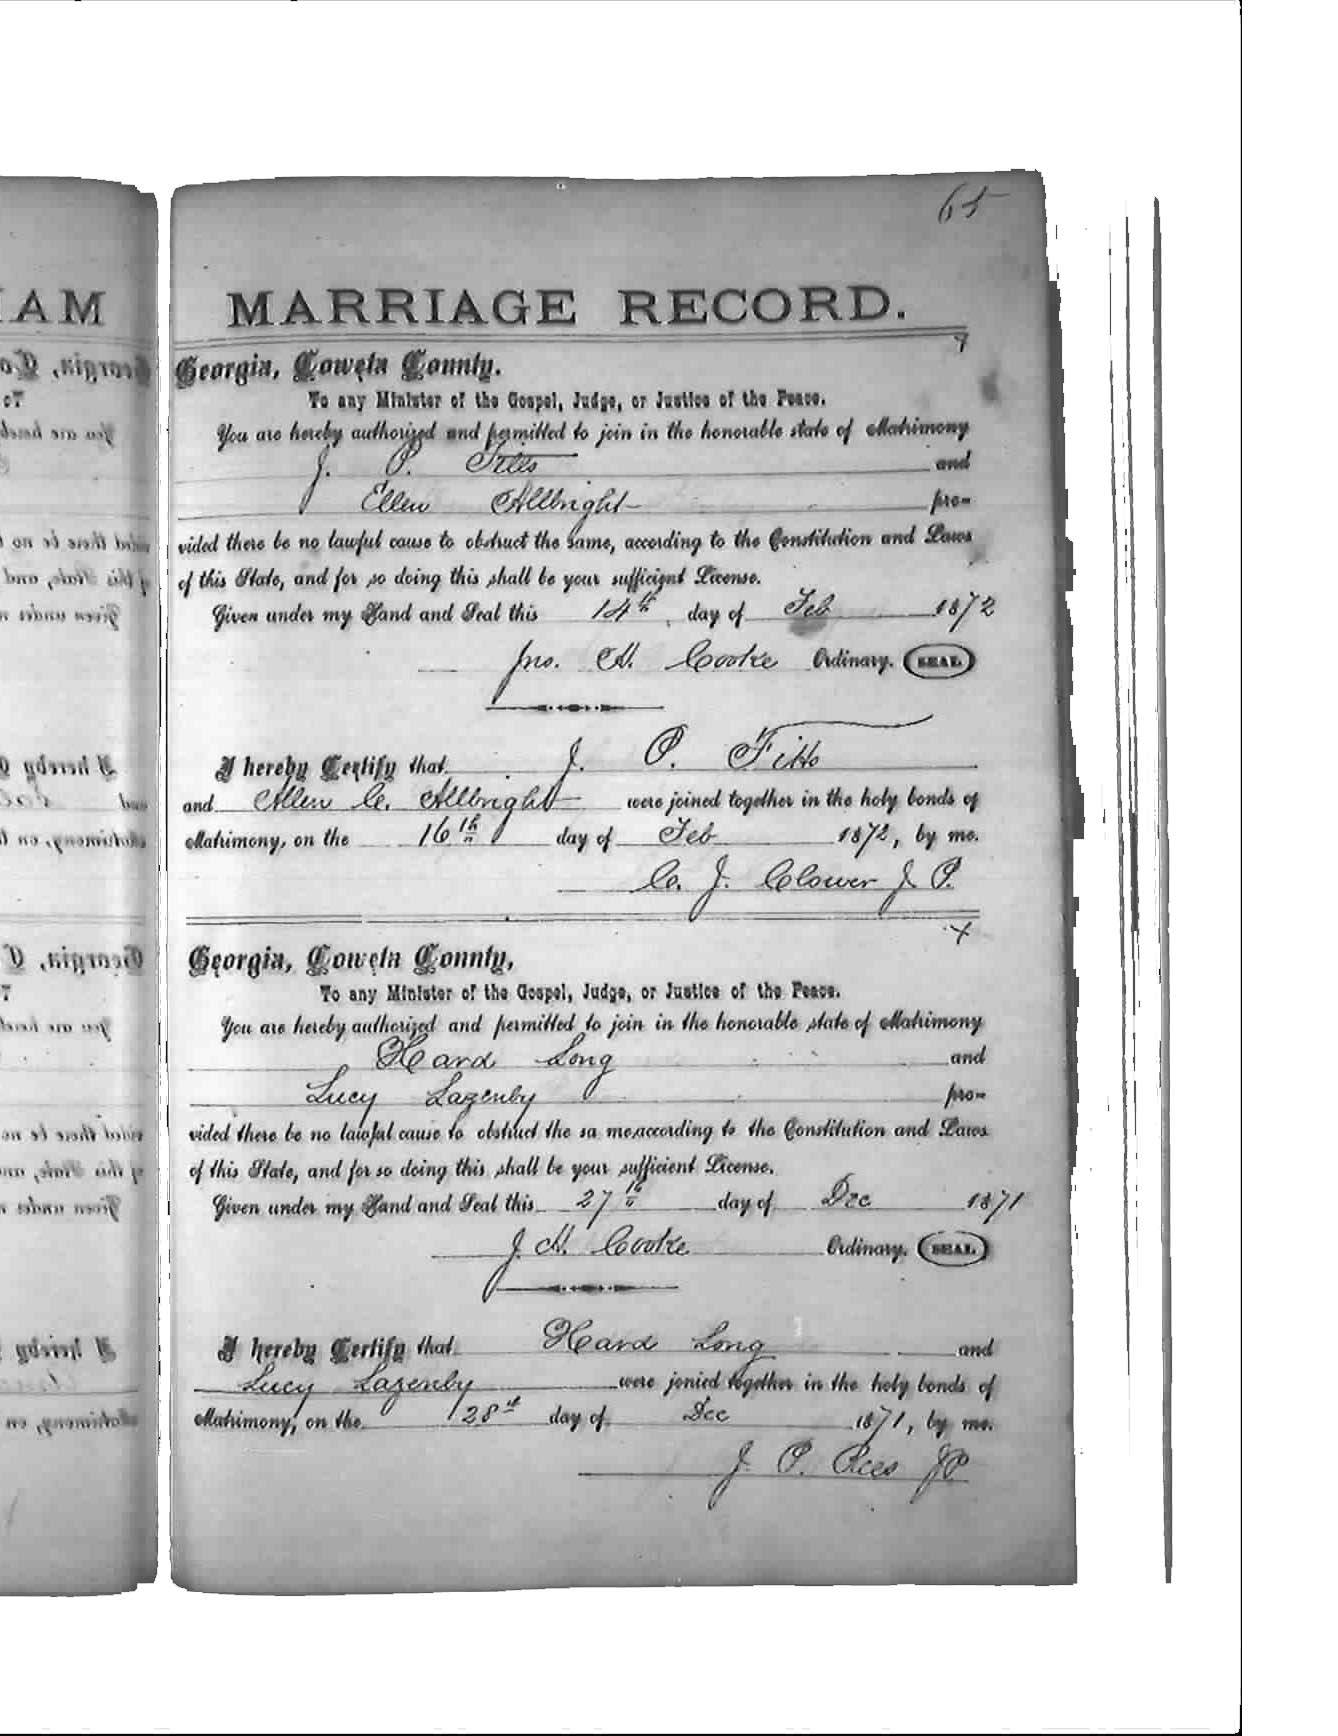 65
MARRIAGE RECORD.
Georgia, Coweta County.
To any Minister of the Gospel, Judge, or Justice of the Peace.
You are hereby authorized and permitted to join in the honorable state of Matrimony
J. P. Fitts and
Ellen Allbright pro-
vided there be no lawful cause to obstruct the same, according to the Constitution and Laws
of this State, and for so doing this shall be your sufficient License.
Given under my Hand and Seal this 14th day of Feb 1872
Jno. H. Cooke Ordinary. SEAL
I hereby Certify that J. P. Fitts
and Allen C. Allbright were joined together in the holy bonds of
Matrimony, on the 16th day of Feb 1872, by me.
C. J. Clower J. P.
Georgia, Coweta County,
To any Minister of the Gospel, Judge, or Justice of the Peace.
You are hereby authorized and permitted to join in the honorable state of Matrimony
Hard Long and
Lucy Lazenby pro-
vided there be no lawful cause to obstruct the sa me,according to the Constitution and Laws
of this State, and for so doing this shall be your sufficient License.
Given under my Hand and Seal this 27th day of Dec 1871
J. H. Cooke Ordinary. SEAL
I hereby Certify that Hard Long and
Lucy Lazenby were jonied together in the holy bonds of
Matrimony, on the 28th day of Dec 1871, by me.
J. P. Rees JP